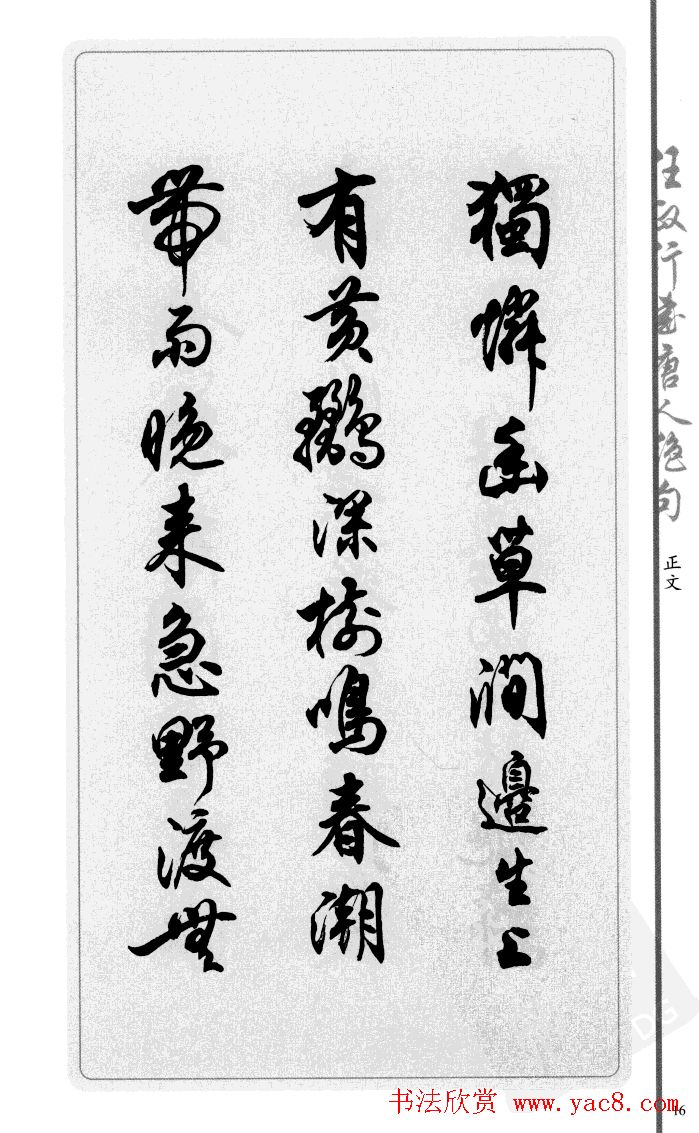 任政行書唐人絶句
正文
獨憐幽草澗邊生上
有黄鸝深樹鳴春潮
帶雨晚來急野渡無
书法欣赏 www.yac8.com
16